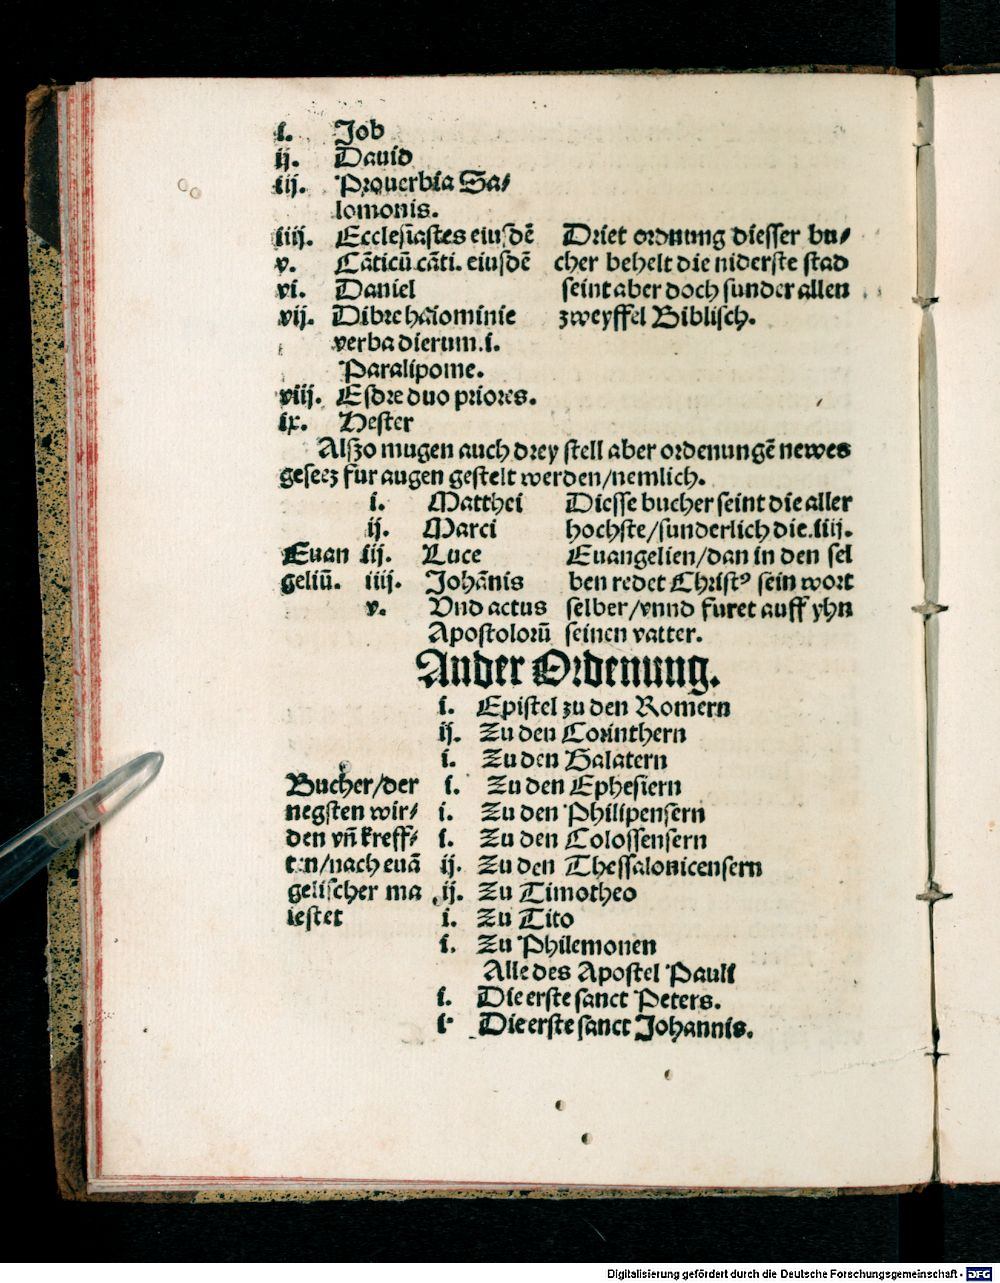 i. Job
ij. Dauid
iij. Prouerbia Sa⸗
lomonis.
iiij. Ecclesiastes eiusdē Driet ordnung diesser bu⸗
v. Cāticū cāti. eiusdē cher behelt die niderste stad
vi. Daniel seint aber doch sunder allen
vij. Dibre haiominie zweyffel Biblisch.
verba dierum.i.
Paralipome.
viij. Esdre duo priores.
ix. Hester
Alßo mugen auch drey stell aber ordenungē newes
gesecz fur augen gestelt werden/nemlich.
i. Matthei Diesse bucher seint die aller
ij. Marci hochste/sunderlich die.iiij.
Euan iij. Luce Euangelien/dan in den sel
geliū. iiij. Johānis ben redet Christꝰ sein wort
v. Vnd actus selber/vnnd furet auff yhn
Apostolorū seinen vatter.
Ander Ordenung.
i. Epistel zu den Romern
ij. Zu den Corinthern
i. Zu den Galatern
Bucher/der i. Zu den Ephesiern
negsten wir⸗ i. Zu den Philipensern
den vn̄ kreff⸗ i. Zu den Colossensern
ten/nach euā ij. Zu den Thessalonicensern
gelischer ma ij. Zu Timotheo
iestet i. Zu Tito
i. Zu Philemonen
Alle des Apostel Pauli
i. Die erste sanct Peters.
i. Die erste sanct Johannis.
Digitalisierung gefördert durch die Deutsche Forschungsgemeinschaft - DFG